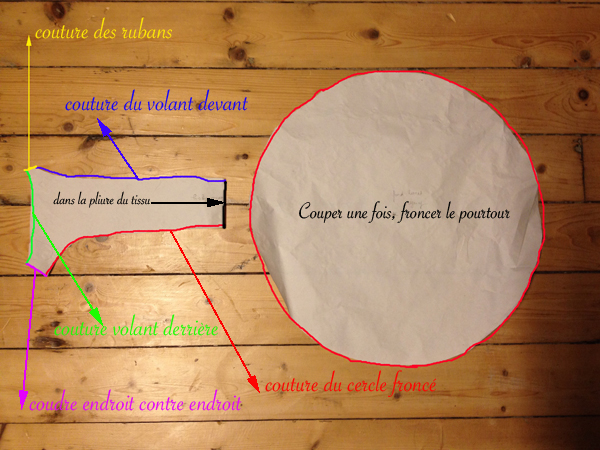 couture des rubans
couture du volant devant
dans la pliure du tissu
Couper une fois, froncer le pourtour
couture volant derrière
couture du cercle froncé
coudre endroit contre endroit